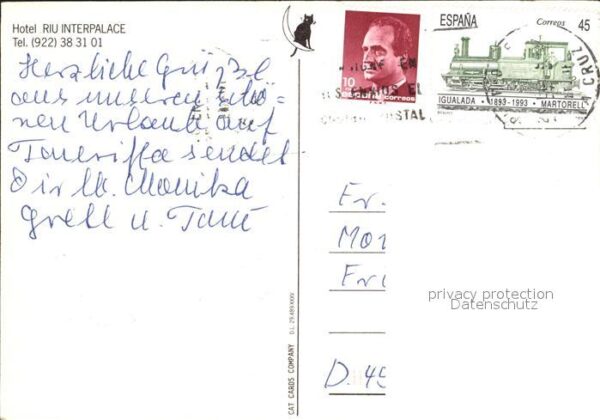 Hotel RIU INTERPALACE
Tel. (922) 38 31 01
Herzliche Grüße
aus unseren schö=
nen Urlaub auf
Teneriffa sendet
Dir lb. Monika
Gretl u. Toni
CAT CARDS COMPANY
10
correos
ESPAÑA
Correos
45
IGUALADA · 1893-1993 · MARTORELL
CRUZ
Fr.
D.
privacy protection
Datenschutz